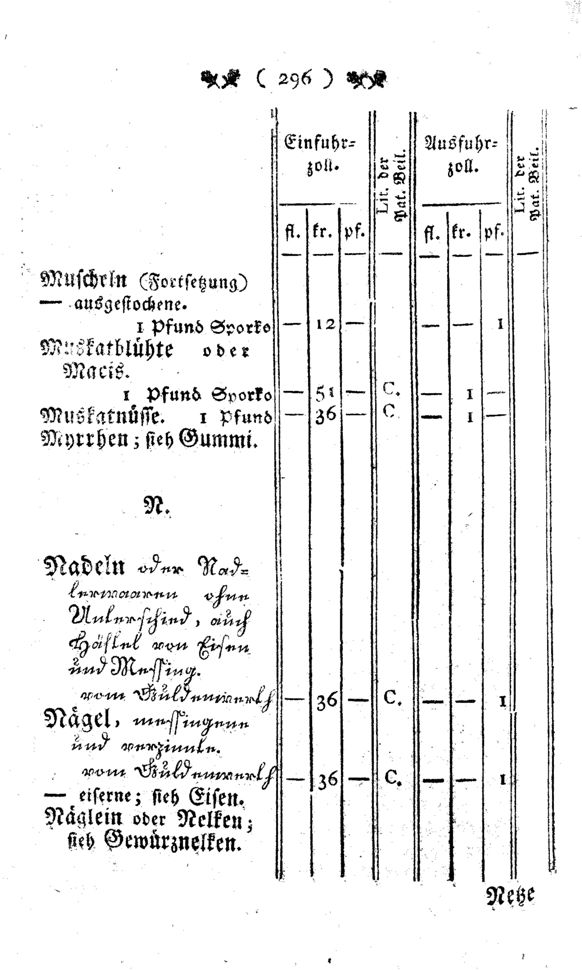 ( 296 )
Einfuhr=
zoll.
Lit. der
Pat. Beil.
Ausfuhr=
zoll.
Lit. der
Pat. Beil.
fl. kr. pf. fl. kr. pf.
— — — — — — — —
Muscheln (Fortsetzung)
— ausgestochene.
1 Pfund Sporko — 12 — — — 1
Muskatblühte oder
Macis.
1 Pfund Sporko — 51 — C. — 1 —
Muskatnüsse. 1 Pfund — 36 — C — 1 —
Myrrhen; sieh Gummi.
N.
Nadeln oder Nad=
lerwaaren ohne
Unterschied, auch
Häftel von Eisen
und Messing.
vom Guldenwerth — 36 — C. — — 1
Nägel, messingene
und verzinnte.
vom Guldenwerth — 36 — C. — — 1
— eiserne; sieh Eisen.
Näglein oder Nelken;
sieh Gewürznelken.
Netze